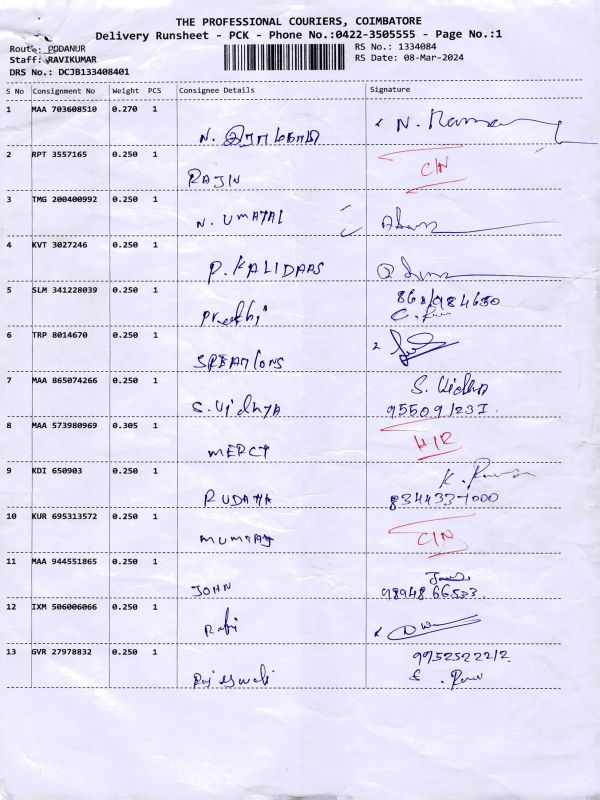 THE PROFESSIONAL COURIERS, COIMBATORE
Delivery Runsheet - PCK - Phone No.:0422-3505555 - Page No.:1
Route: PODANUR
RS No.: 1334084
Staff: RAVIKUMAR
RS Date: 08-Mar-2024
DRS No.: DCJB133408401
S No Consignment No Weight PCS Consignee Details Signature
1 MAA 703608510 0.270 1
N.
2 RPT 3557165 0.250 1
RAJIN CIN
3 TMG 200400992 0.250 1
N. UMAPAL
4 KVT 3027246 0.250 1
P. KALIDAAS
5 SLM 341228039 0.250 1
Preethi
6 TRP 8014670 0.250 1
7 MAA 865074266 0.250 1 S. Vidhya
S. Vidhya 95509 1231
8 MAA 573980969 0.305 1
MERCY
9 KDI 650903 0.250 1
8344337000
10 KUR 695313572 0.250 1 CIN
11 MAA 944551865 0.250 1
JOHN 98948 66533
12 IXM 506006066 0.250 1
Rafi
13 GVR 27978832 0.250 1 9952522212
Rajeswari